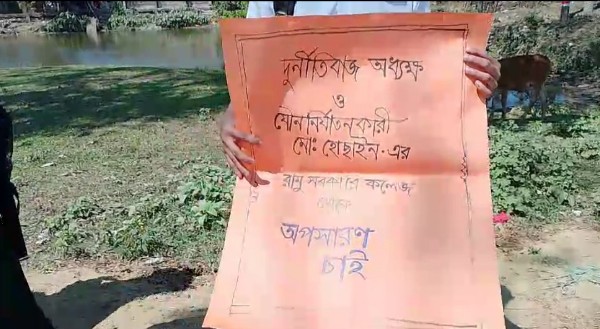 দুর্নীতিবাজ অধ্যক্ষ
ও
যৌন নির্যাতনকারী
মোঃ হোছাইন-এর
রামু সরকারি কলেজ
থেকে
অপসারণ
চাই